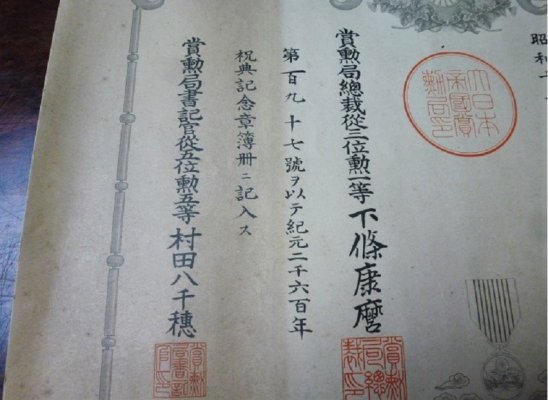 昭和十
大日本帝國賞勲局印
賞勲局總裁從三位勲一等下條康麿
賞勲局總裁印
第百九十七號ヲ以テ紀元二千六百年
祝典記念章簿册ニ記入ス
賞勲局書記官從五位勲五等村田八千穗
賞勲局書記官印